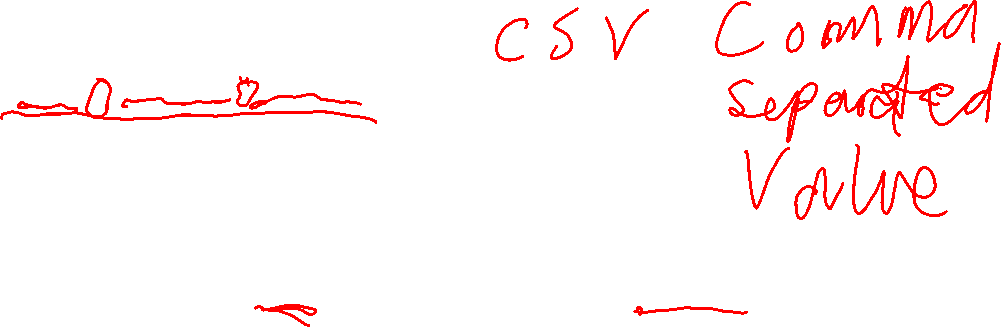 CSV Comma
separated
Value